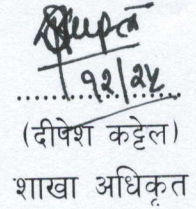 १२/२५
(दीपेश कट्टेल)
शाखा अधिकृत